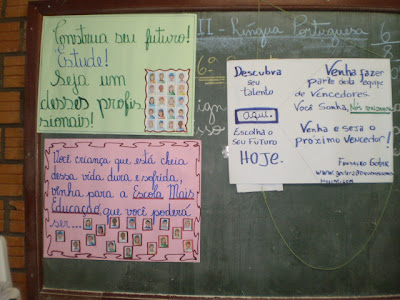 Construa seu futuro!
Estude!
Seja um
desses profis
sionais!
Você criança que está cheia
dessa vida dura e sofrida,
venha para a Escola Mais
Educação que você poderá
ser...
II - Língua Portuguesa
6º
Descubra
seu
talento
aqui.
Escolha o
seu Futuro
HOJE.
Venha fazer
parte desta equipe
de Vencedores
Você Sonha, Nós
Venha e seja o
próximo Vencedor!
6
8